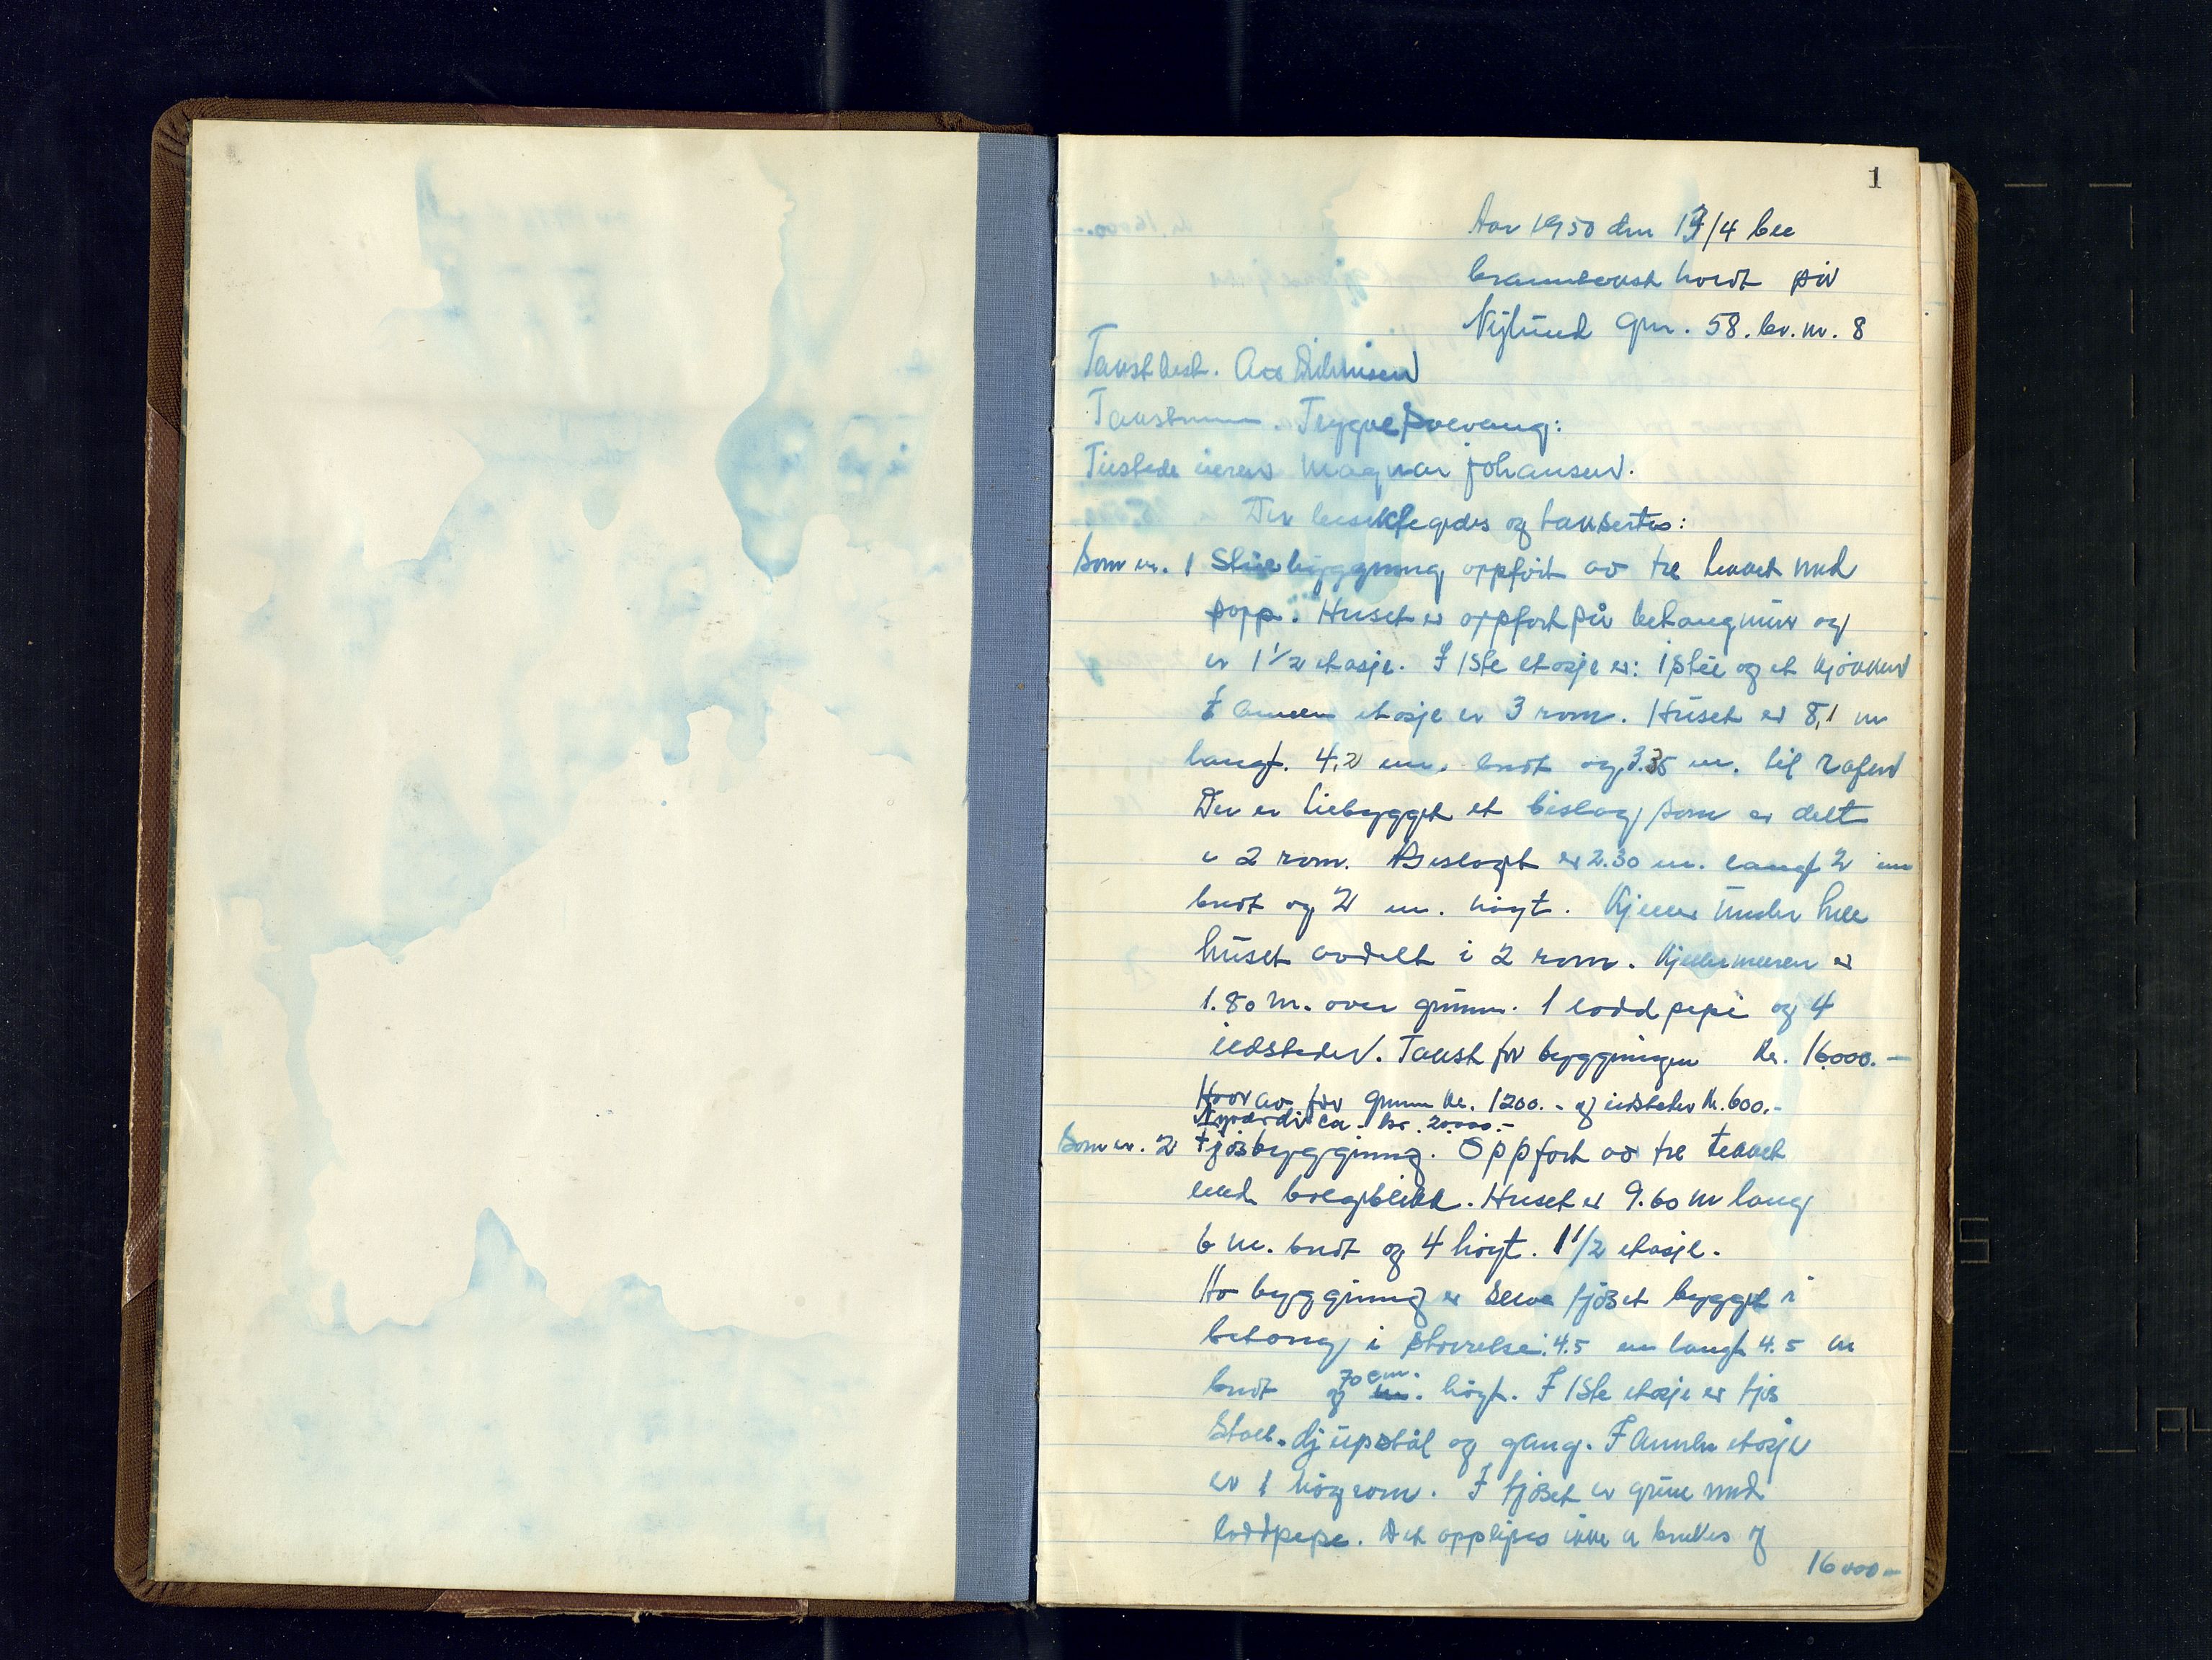 1
Aar 1950 den 17/4 ble
branntakst holdt på
Nylund gnr. 58. br. nr. 8
Takstbest.
Takstmenn. Trygve Solvang:
Tilstede eieren Magnar Johansen.
Der besiktegedes og taksertes:
Som nr. 1 Stuebyggning oppført av tre tekket med
papp. Huset er oppført på betongmur og
er 1 1/2 etasje. I 1ste etasje er: 1 stue og et kjøkken
I annen etasje er 3 rom. Huset er 8,1 m
langt. 4,2 m. bredt og 3.35 m. til rafen
Der er tilbygget et bislag som er delt
i 2 rom. Bislaget er 2.30 m. langt 2 m
bredt og 2 m. høyt. Kjeller under hele
huset avdelt i 2 rom. Kjellermuren er
1.80 m. over grunn. 1 loddpipe og 4
ildsteder. Takst for byggningen kr. 16000.-
Hvorav for grunn kr. 1200.- og ildsteder kr. 600.-
Nyverdi ca. kr. 20000.-
Som nr. 2 Fjøsbyggning. Oppført av tre tekket
med bølgblikk. Huset er 9.60 m lang
6 m. bredt og 4 høyt. 1 1/2 etasje.
Av byggning er selve fjøset bygget i
betong i størrelse: 4.5 m langt 4.5 m
bredt og 70 cm. høyt. I 1ste etasje er fjøs
Stall. djupstål og gang. I annen etasje
er 1 høyrom. I fjøset er grue med
loddpipe. Det opplyses ikke a brukes og
16000-